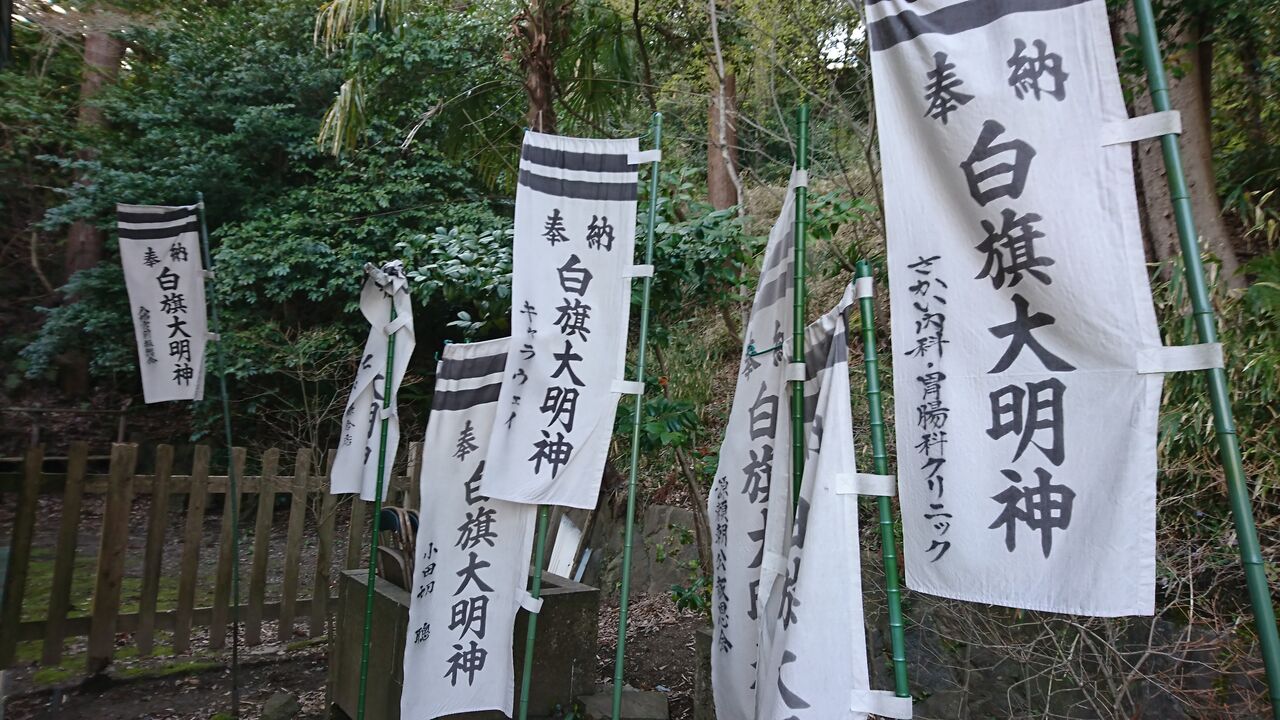 奉納
白旗大明神
奉納
白旗大明神
キャラウェイ
奉
白旗大明神
小田切
奉納
白旗大明
源頼朝公報恩会
奉納
白旗大明神
さかい内科・胃腸科クリニック